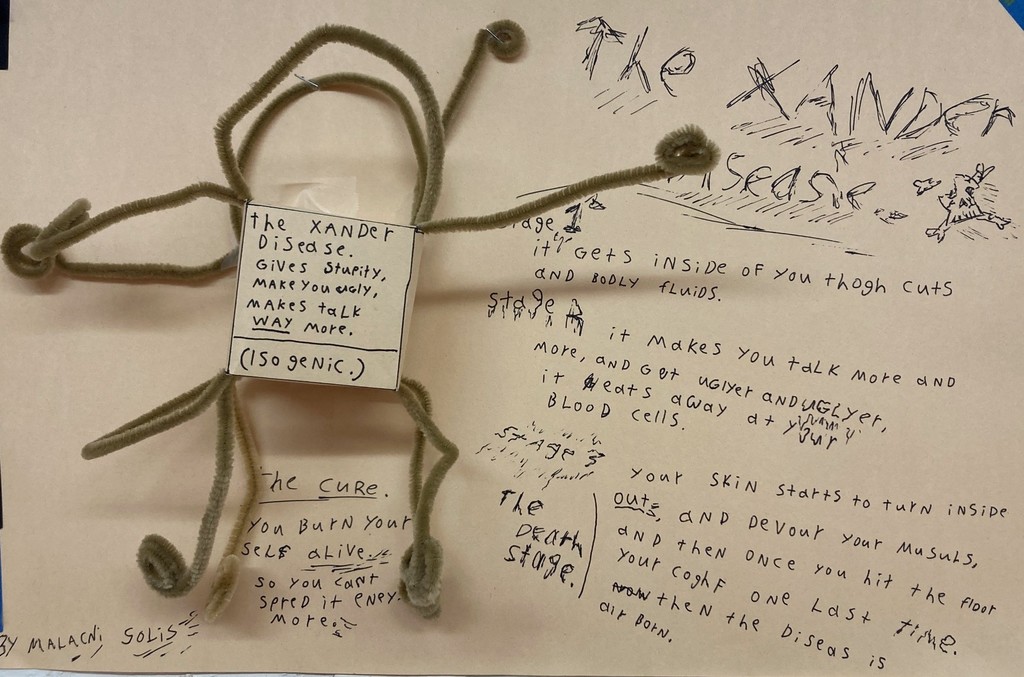 The XANDer
Disease.
stage 1
it GETS iNSiDE OF YOU thogh CUTS
AND BODLY fLUiDS.
stage
it MAKES YOU tALK MORE AND
MORE, AND GET UGLYER ANDUGLYER,
it eats AWAY At your
BLOOD CELLS.
stAge 3
The
DEAth
stage.
YOUR SKIN StArts to turN iNSiDE
OUt, AND DEVOUR YOUR MUSULS,
AND thEN ONCE YOU hit thE FLOOR
YOUR COGhF ONE LASt tiME.
thEN thE DiSEAS iS
AiR BORN.
the XANDer
DiSease.
GiVES StUPitY,
MAKE YOU UgLY,
MAKES taLK
WAY MORE.
(ISO GENiC.)
the CURE.
YOU BURN YOUR
SELF ALIVE.
SO YOU CANt
SPRED it ENEY.
MORE.
BY MALACNi SOLiS